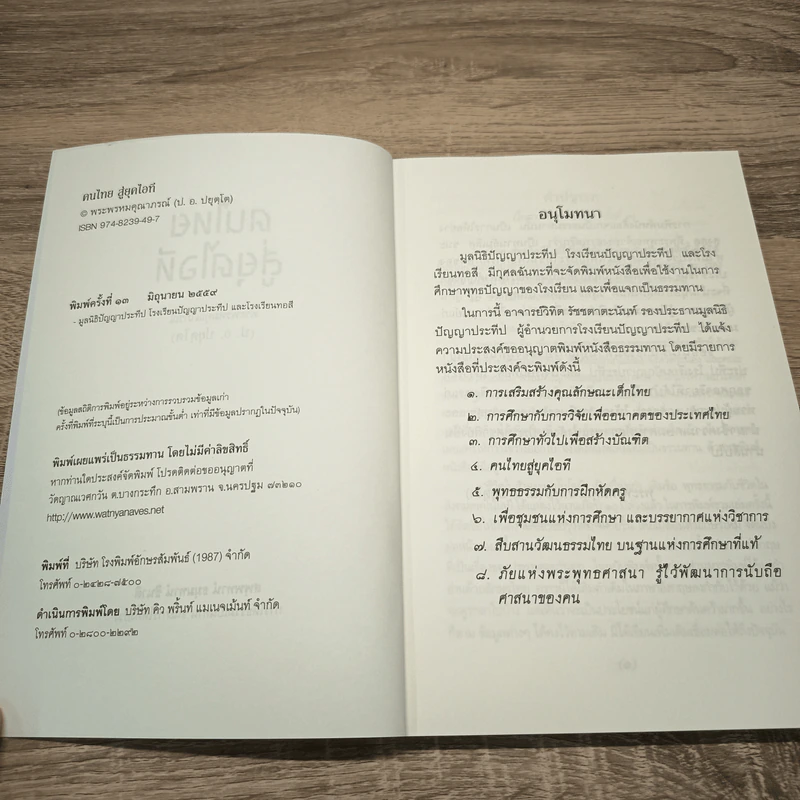 คนไทย สู่ยุคไอที
© พระพรหมคุณาภรณ์ (ป. อ. ปยุตฺโต)
ISBN 974-8239-49-7
พิมพ์ครั้งที่ ๑๓ มิถุนายน ๒๕๕๙
- มูลนิธิปัญญาประทีป โรงเรียนปัญญาประทีป และโรงเรียนทอสี
(ข้อมูลสถิติการพิมพ์อยู่ระหว่างการรวบรวมข้อมูลเก่า
ครั้งที่พิมพ์ที่ระบุนี้เป็นการประมาณขั้นต่ำ เท่าที่มีข้อมูลปรากฏในปัจจุบัน)
พิมพ์เผยแพร่เป็นธรรมทาน โดยไม่มีค่าลิขสิทธิ์
หากท่านใดประสงค์จัดพิมพ์ โปรดติดต่อขออนุญาตที่
วัดญาณเวศกวัน ต.บางกระทึก อ.สามพราน จ.นครปฐม ๗๓๒๑๐
http://www.watnyanaves.net
พิมพ์ที่ บริษัท โรงพิมพ์อักษรสัมพันธ์ (1987) จำกัด
โทรศัพท์ ๐-๒๔๒๘-๗๕๐๐
ดำเนินการพิมพ์โดย บริษัท คิว พริ้นท์ แมเนจเม้นท์ จำกัด
โทรศัพท์ ๐-๒๘๐๐-๒๒๙๒
อนุโมทนา
มูลนิธิปัญญาประทีป โรงเรียนปัญญาประทีป และโรง
เรียนทอสี มีกุศลฉันทะที่จะจัดพิมพ์หนังสือเพื่อใช้งานในการ
ศึกษาพุทธปัญญาของโรงเรียน และเพื่อแจกเป็นธรรมทาน
ในการนี้ อาจารย์วิทิต รัชชตาตะนันท์ รองประธานมูลนิธิ
ปัญญาประทีป ผู้อำนวยการโรงเรียนปัญญาประทีป ได้แจ้ง
ความประสงค์ขออนุญาตพิมพ์หนังสือธรรมทาน โดยมีรายการ
หนังสือที่ประสงค์จะพิมพ์ดังนี้
๑. การเสริมสร้างคุณลักษณะเด็กไทย
๒. การศึกษากับการวิจัยเพื่ออนาคตของประเทศไทย
๓. การศึกษาทั่วไปเพื่อสร้างบัณฑิต
๔. คนไทยสู่ยุคไอที
๕. พุทธธรรมกับการฝึกหัดครู
๖. เพื่อชุมชนแห่งการศึกษา และบรรยากาศแห่งวิชาการ
๗. สืบสานวัฒนธรรมไทย บนฐานแห่งการศึกษาที่แท้
๘. ภัยแห่งพระพุทธศาสนา รู้ไว้พัฒนาการนับถือ
ศาสนาของคน